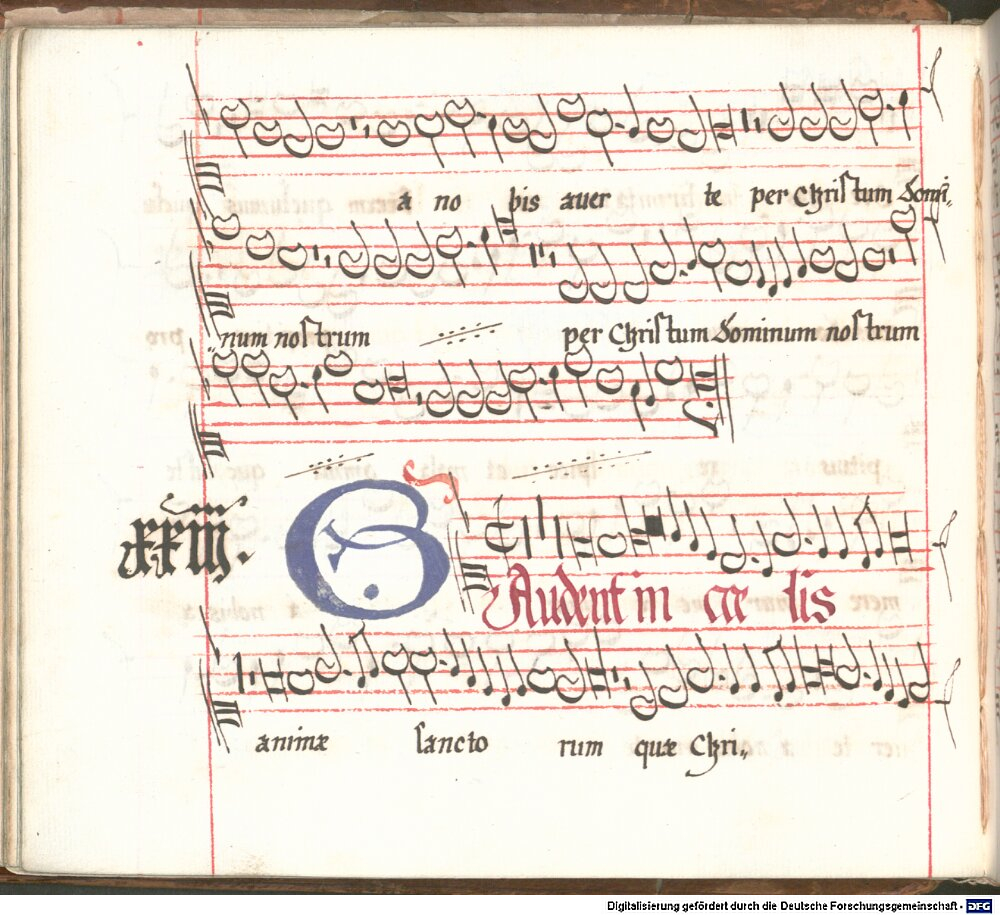 a no bis auer te per Christum Domi,
num nostrum per Christum Dominum nostrum
xxiiij.
GAudent in cæ lis
animæ sancto rum quæ Chri,,
Digitalisierung gefördert durch die Deutsche Forschungsgemeinschaft - DFG